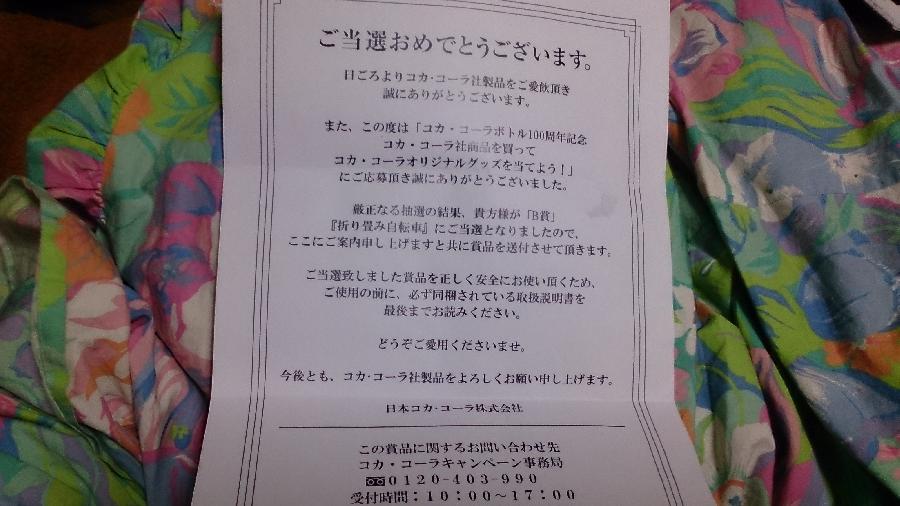 ご当選おめでとうございます。
日ごろよりコカ･コーラ社製品をご愛飲頂き
誠にありがとうございます。
また、この度は「コカ・コーラボトル100周年記念
コカ・コーラ社商品を買って
コカ・コーラオリジナルグッズを当てよう！」
にご応募頂き誠にありがとうございました。
厳正なる抽選の結果、貴方様が「B賞」
『折り畳み自転車』にご当選となりましたので、
ここにご案内申し上げますと共に賞品を送付させて頂きます。
ご当選致しました賞品を正しく安全にお使い頂くため、
ご使用の前に、必ず同梱されている取扱説明書を
最後までお読みください。
どうぞご愛用くださいませ。
今後とも、コカ･コーラ社製品をよろしくお願い申し上げます。
日本コカ・コーラ株式会社
この賞品に関するお問い合わせ先
コカ・コーラキャンペーン事務局
0120-403-990
受付時間：10：00～17：00